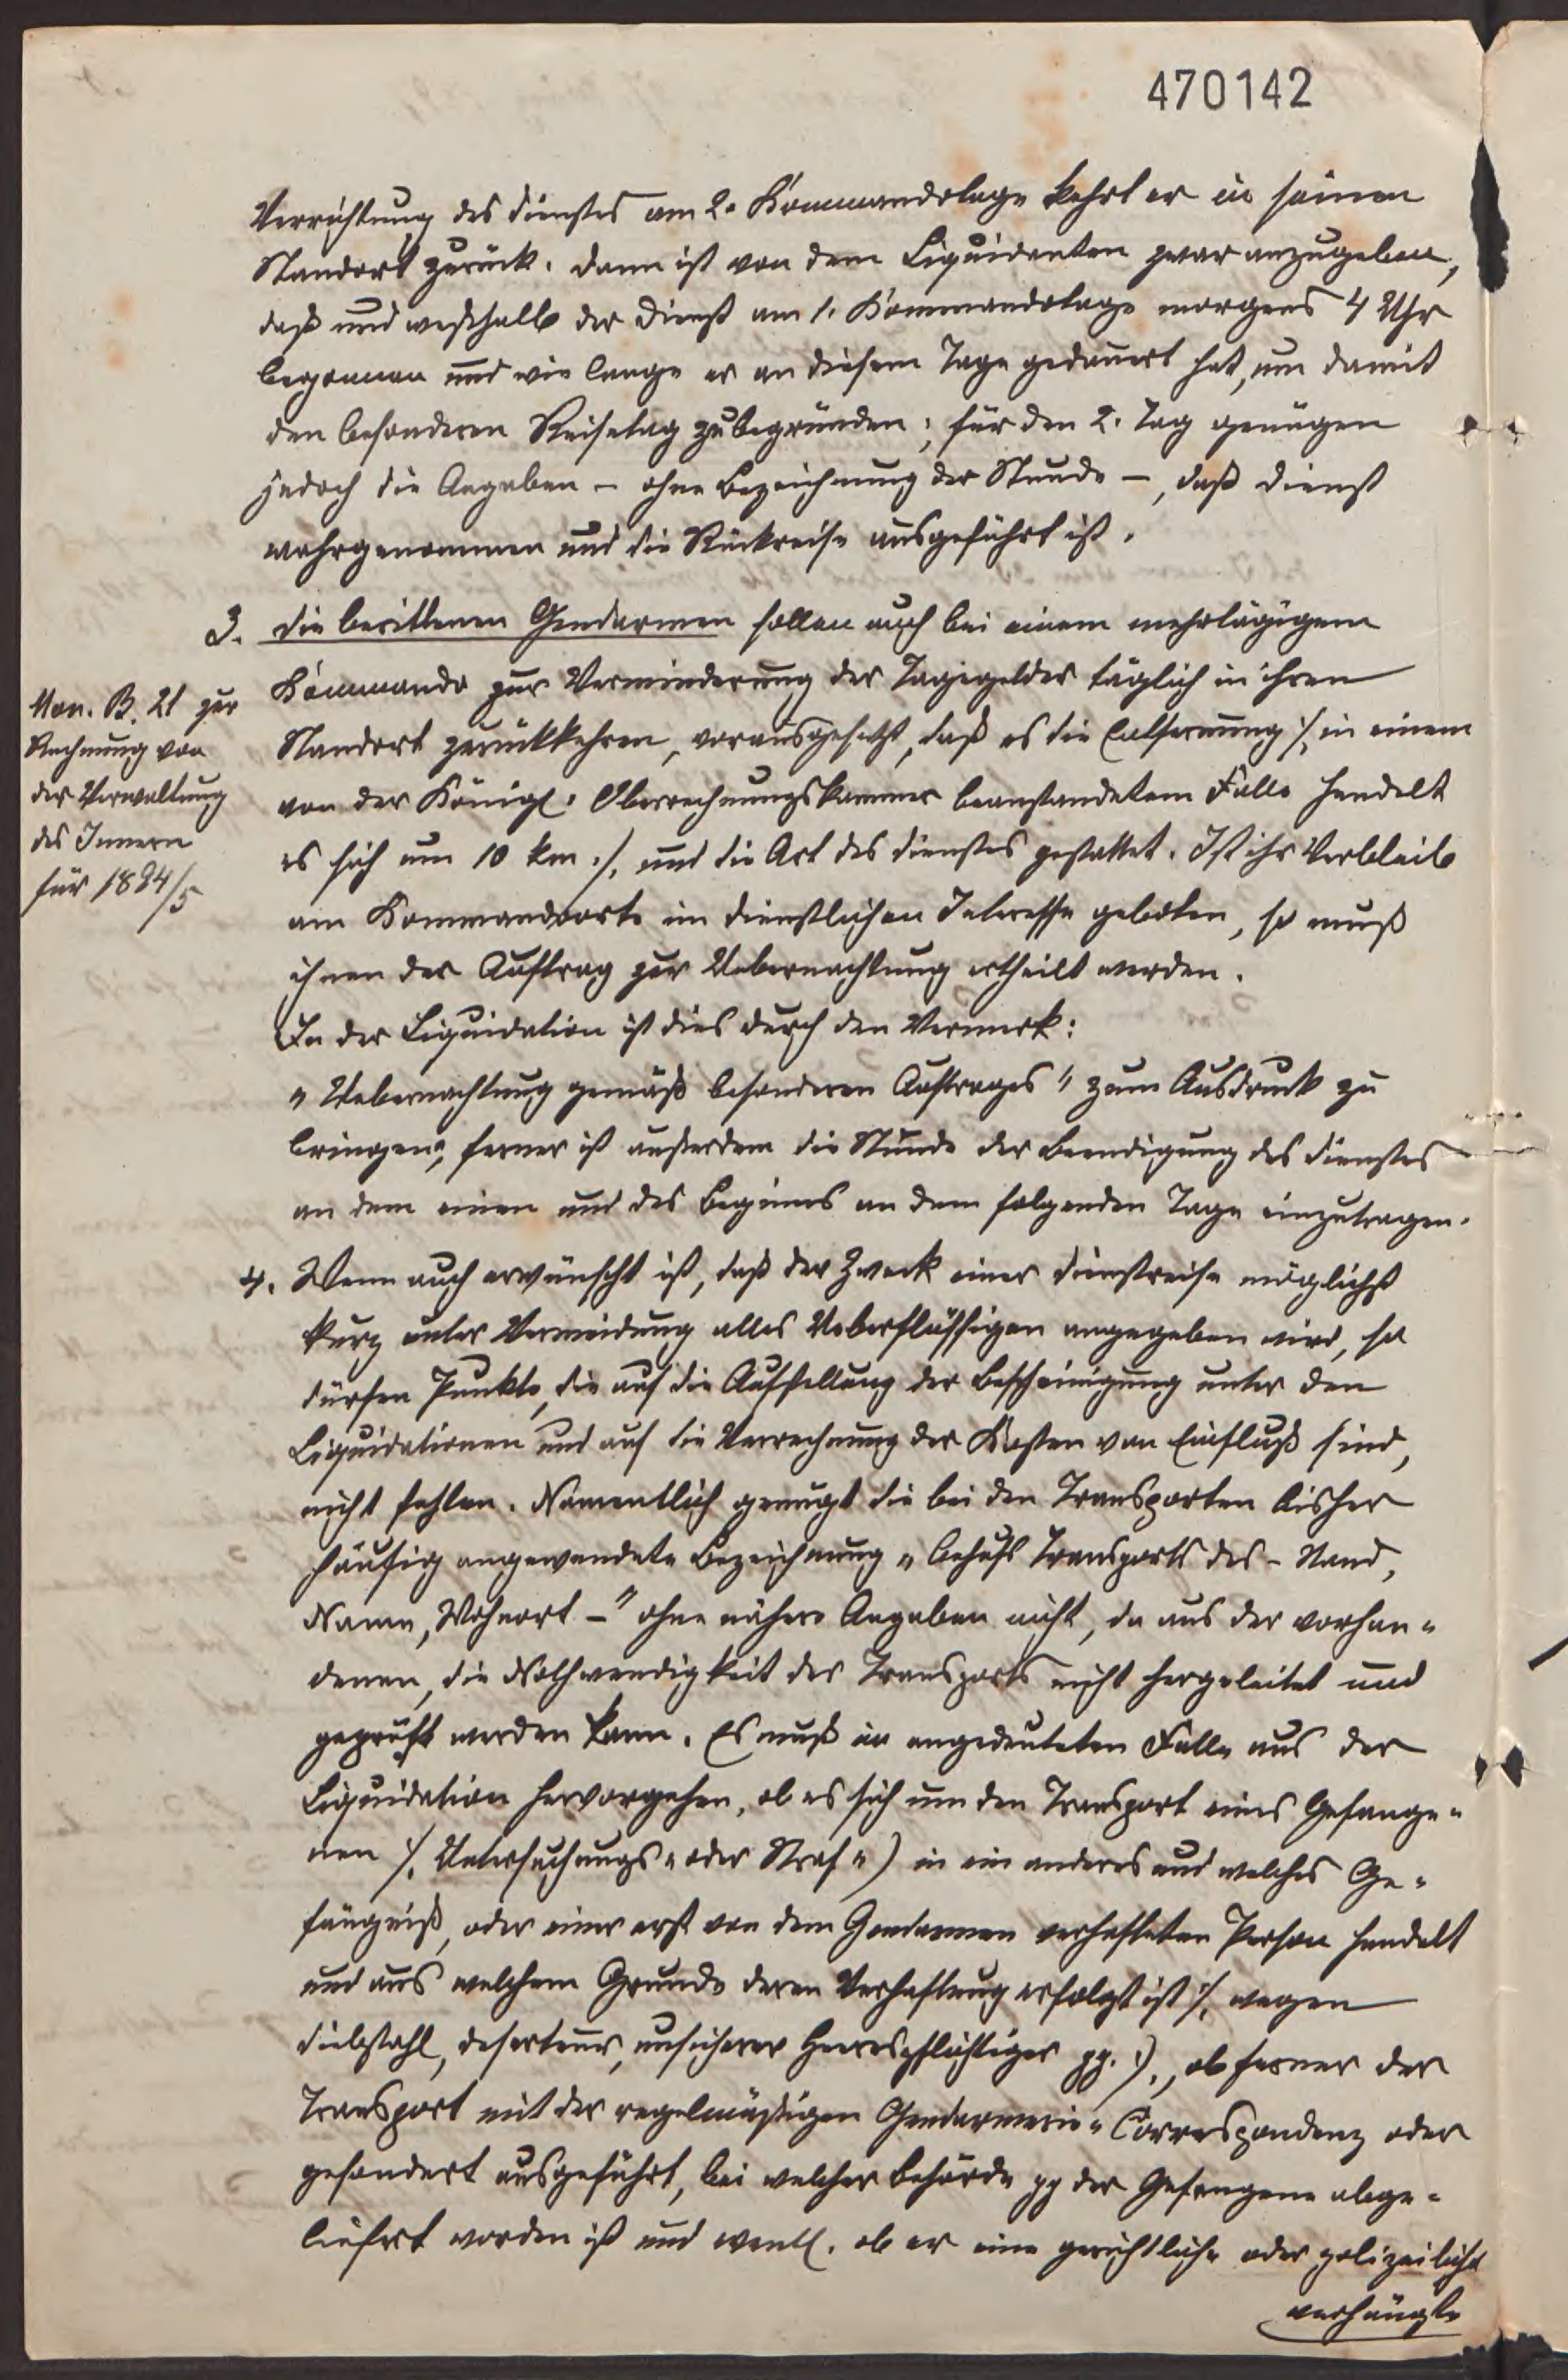 470142
Verrichtung des Dienstes am 2. Kommandotage kehrt er in seinen
Standort zurück. Dann ist von dem Liquidanten zwar anzugeben,
daß und weßhalb der Dienst am 1. Kommandotage morgens 4 Uhr
begonnen und wie lange er an diesem Tage gedauert hat, um damit
den besonderen Reisetag zu begründen; für den 2. Tag genügen
jedoch die Angaben – ohne Bezeichnung der Stunde –, daß Dienst
wahrgenommen und die Rückreise ausgeführt ist.
3. Die berittenen Gendarmen sollen auch bei einem mehrtägigem
Kommando zur Verminderung der Tagegelder täglich in ihren
Standort zurückkehren, vorausgesetzt, daß es die Entfernung /: in einem
von der Königl. Oberrechnungskammer beanstandetem Falle handelt
es sich um 10 km :/, und die Art des Dienstes gestattet. Ist ihr Verbleib
am Kommandoorte im dienstlichen Interesse geboten, so muß
ihnen der Auftrag zur Uebernachtung ertheilt werden.
In der Liquidation ist dies durch den Vermerk:
„Uebernachtung gemäß besonderen Auftrages" zum Ausdruck zu
bringen; ferner ist außerdem die Stunde der Beendigung des Dienstes
an dem einen und des Beginns an dem folgenden Tage einzutragen.
Mon. B. 21 zur
Rechnung von
der Verwaltung
des Innern
für 1894/5
4. Wenn auch erwünscht ist, daß der Zweck einer Dienstreise möglichst
kurz unter Vermeidung alles Ueberflüssigen angegeben wird, so
dürfen Punkte, die auf die Aufstellung der Bescheinigung unter den
Liquidationen und auf die Verrechnung der Kosten von Einfluß sind,
nicht fehlen. Namentlich genügt die bei den Transporten bisher
häufig angewendete Bezeichnung „behufs Transports des – Stand,
Name, Wohnort –" ohne nähere Angaben nicht, da aus der vorhan-
denen, die Nothwendigkeit des Transports nicht hergeleitet und
geprüft werden kann. Es muß im angedeuteten Falle aus der
Liquidation hervorgehen, ob es sich um den Transport eines Gefange-
nen /: Untersuchungs- oder Straf-) in ein anderes und welches Ge-
fängniß, oder einer erst von dem Gendarmen verhafteten Person handelt
und aus welchem Grunde deren Verhaftung erfolgt ist /: wegen
Diebstahl, Deserteur, unsicherer Heerespflichtiger pp. :/, ob ferner der
Transport mit der regelmäßigen Gendarmerie-Correspondenz oder
gesondert ausgeführt, bei welcher Behörde pp der Gefangene abge-
liefert worden ist und eventl. ob er eine gerichtliche oder polizeilich
verhängte